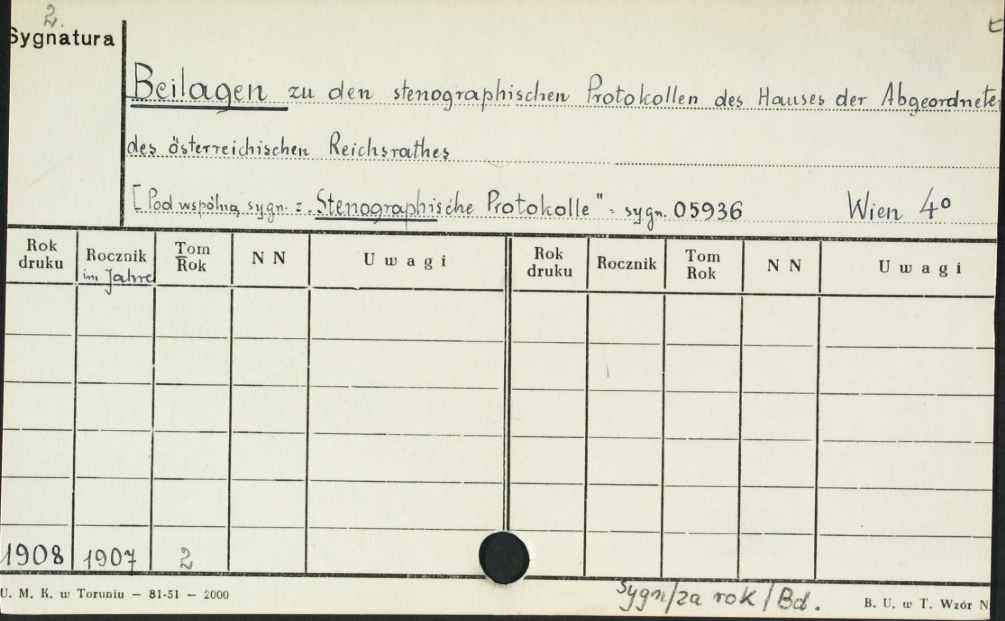 2.
Sygnatura
Beilagen zu den stenographischen Protokollen des Hauses der Abgeordnete
des österreichischen Reichsrathes
[Pod wspólną sygn. : „Stenographische Protokolle" = sygn. 05936 Wien 4°
Rok druku Rocznik im Jahre Tom Rok N N Uwagi Rok druku Rocznik Tom Rok N N Uwagi
1908 1907 2
U. M. K. w Toruniu — 81-51 — 2000
Sygn/za rok/Bd.
B. U. w T. Wzór N